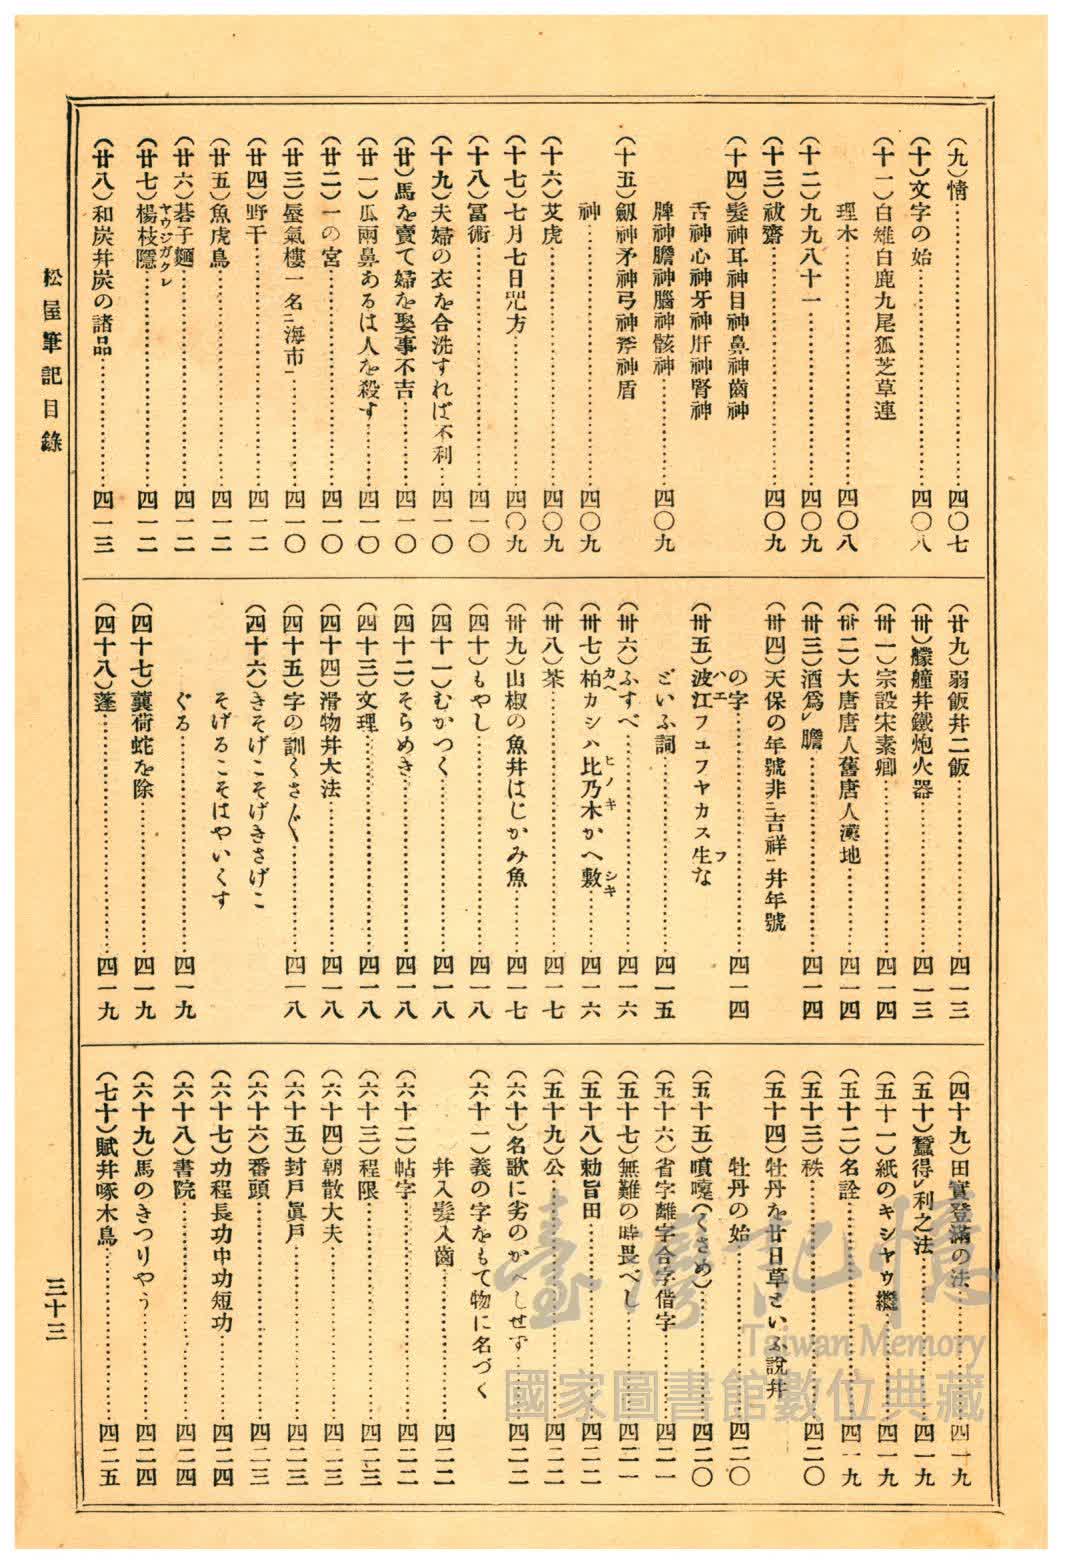 (九)情…………四〇七
(十)文字の始…………四〇八
(十一)白雉白鹿九尾狐芝草連
理木…………四〇八
(十二)九九八十一…………四〇九
(十三)祓齋…………四〇九
(十四)髮神耳神目神鼻神齒神
舌神心神牙神肝神腎神
脾神膽神腦神骸神…………四〇九
(十五)劔神矛神弓神斧神盾
神…………四〇九
(十六)艾虎…………四〇九
(十七)七月七日咒方…………四〇九
(十八)冨術…………四一〇
(十九)夫婦の衣を合洗すれば不利…四一〇
(廿)馬を賣て婦を娶事不吉…………四一〇
(廿一)瓜兩鼻あるは人を殺す…………四一〇
(廿二)一の宮…………四一〇
(廿三)蜃氣樓一名ニ海市一…………四一〇
(廿四)野干…………四一二
(廿五)魚虎鳥…………四一二
(廿六)碁子麵…………四一二
(廿七)楊枝隱ヤウジガクレ…………四一二
(廿八)和炭井炭の諸品…………四一三
(廿九)弱飯井二飯…………四一三
(卅)艨艟井鐵炮火器…………四一三
(卅一)宗設宋素卿…………四一四
(卅二)大唐唐人舊唐人漢地…………四一四
(卅三)酒爲レ膽…………四一四
(卅四)天保の年號非ニ吉祥一井年號
の字…………四一四
(卅五)波江ハエフユフヤカス生フな
どいふ詞…………四一五
(卅六)ふすべ…………四一六
(卅七)柏カヘカシハ比乃木ヒノキかへ敷シキ…………四一六
(卅八)茶…………四一七
(卅九)山椒の魚井はじかみ魚…………四一七
(四十)もやし…………四一八
(四十一)むかつく…………四一八
(四十二)そらめき…………四一八
(四十三)文理…………四一八
(四十四)滑物井大法…………四一八
(四十五)字の訓くさ〴〵…………四一八
(四十六)きそげこそげきさげこ
そげるこそはやいくす
ぐる…………四一九
(四十七)蘘荷蛇を除…………四一九
(四十八)蓬…………四一九
(四十九)田實登滿の法…………四一九
(五十)蠶得レ利之法…………四一九
(五十一)紙のキシヤウ繼…………四一九
(五十二)名詮…………四一九
(五十三)秩…………四二〇
(五十四)牡丹を廿日草といふ說井
牡丹の始…………四二〇
(五十五)噴嚔(くさめ)…………四二〇
(五十六)省字離字合字借字…………四二一
(五十七)無難の時畏べし…………四二一
(五十八)勅旨田…………四二二
(五十九)公…………四二二
(六十)名歌に劣のかへしせず…………四二二
(六十一)義の字をもて物に名づく
井入髮入齒…………四二二
(六十二)帖字…………四二二
(六十三)程限…………四二三
(六十四)朝散大夫…………四二三
(六十五)封戶眞戶…………四二三
(六十六)番頭…………四二三
(六十七)功程長功中功短功…………四二四
(六十八)書院…………四二四
(六十九)馬のきつりやう…………四二四
(七十)賦井啄木鳥…………四二五
松屋筆記目錄
三十三
臺灣記憶
Taiwan Memory
國家圖書館數位典藏